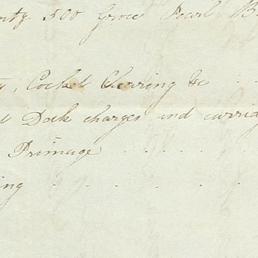 500 groce Pearl B
Cocket Clearing &c
Dock charges and carria
Primage
ing